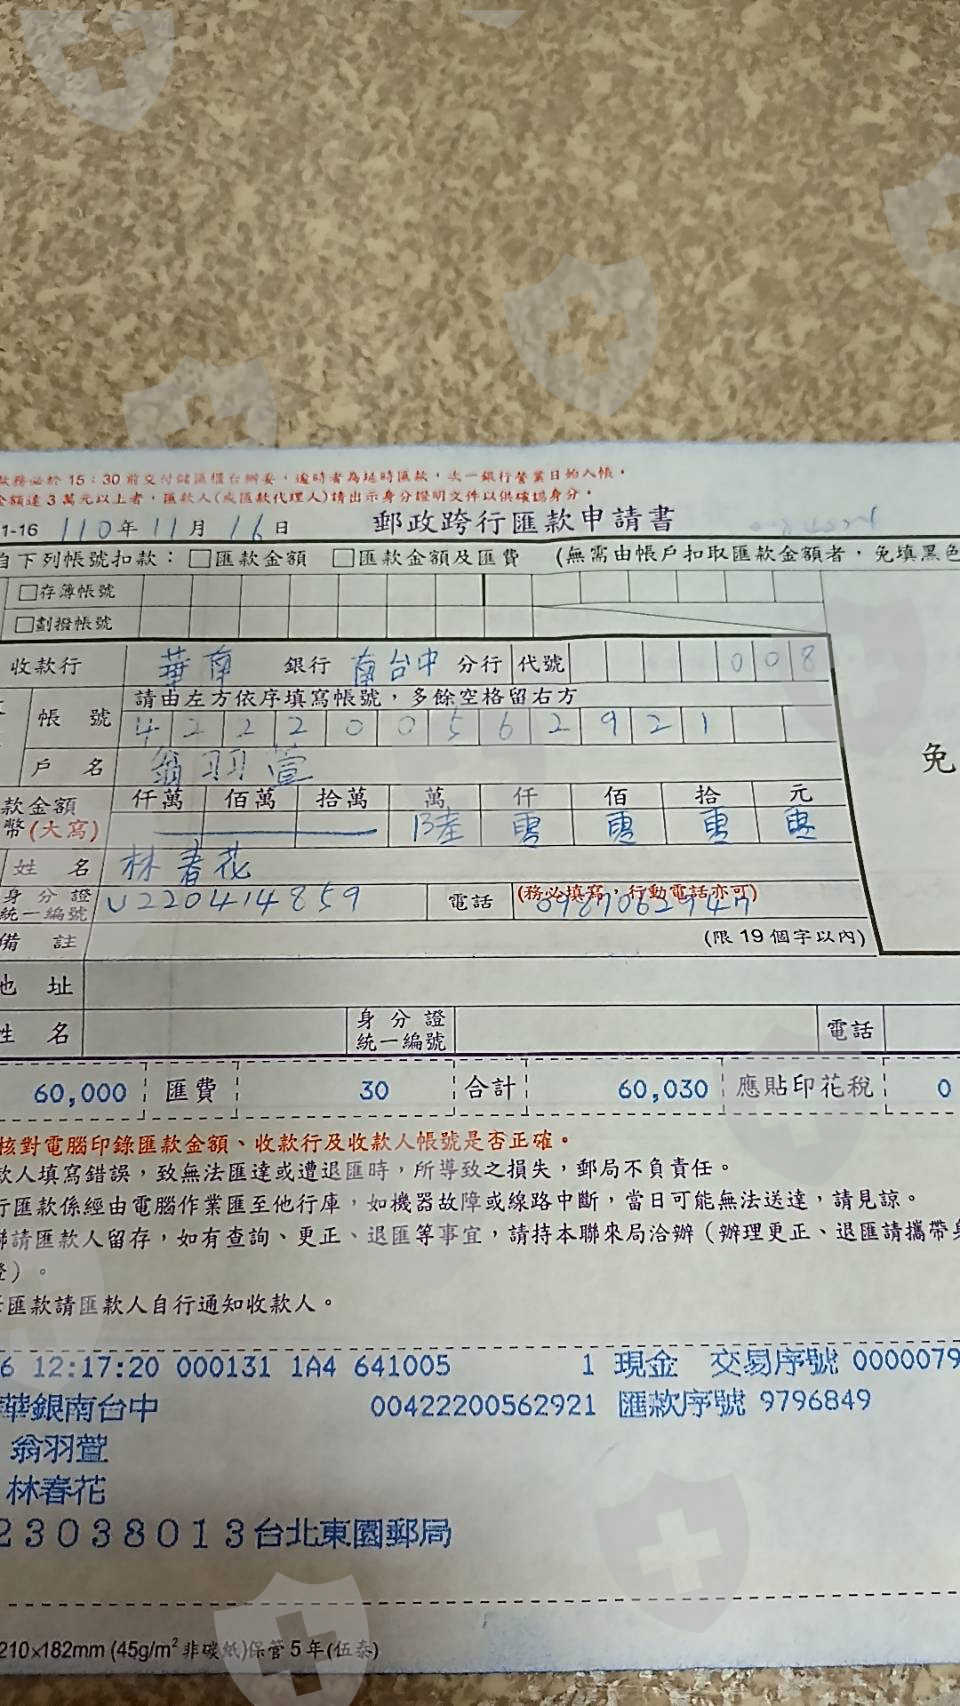 款務必於 15：30 前交付儲匯櫃台辦妥，逾時者為逾時匯款，次一銀行營業日始入帳。
金額達 3 萬元以上者，匯款人(或匯款代理人)請出示身分證明文件以供確認身分。
1-16 110年 11月 16日 郵政跨行匯款申請書
自下列帳號扣款：□匯款金額 □匯款金額及匯費 (無需由帳戶扣取匯款金額者，免填黑色
□存簿帳號
□劃撥帳號
收款行 華南 銀行 南台中 分行 代號 008
請由左方依序填寫帳號，多餘空格留右方
帳 號 422200562921
戶 名 翁羽萱
免
款金額 仟萬 佰萬 拾萬 萬 仟 佰 拾 元
幣(大寫) 陸 零 零 零 零
姓 名 林春花
身分證 統一編號 U220414859 電話 (務必填寫，行動電話亦可)
備 註 (限 19 個字以內)
地 址
姓 名 身分證 統一編號 電話
60,000 匯費 30 合計 60,030 應貼印花稅 0
核對電腦印錄匯款金額、收款行及收款人帳號是否正確。
款人填寫錯誤，致無法匯達或遭退匯時，所導致之損失，郵局不負責任。
行匯款係經由電腦作業匯至他行庫，如機器故障或線路中斷，當日可能無法送達，請見諒。
聯請匯款人留存，如有查詢、更正、退匯等事宜，請持本聯來局洽辦（辦理更正、退匯請攜帶身
證）。
匯款請匯款人自行通知收款人。
6 12:17:20 000131 1A4 641005 1 現金 交易序號 0000079
華銀南台中 00422200562921 匯款序號 9796849
翁羽萱
林春花
23038013台北東園郵局
210×182mm (45g/m² 非碳紙)保管 5 年(伍泰)